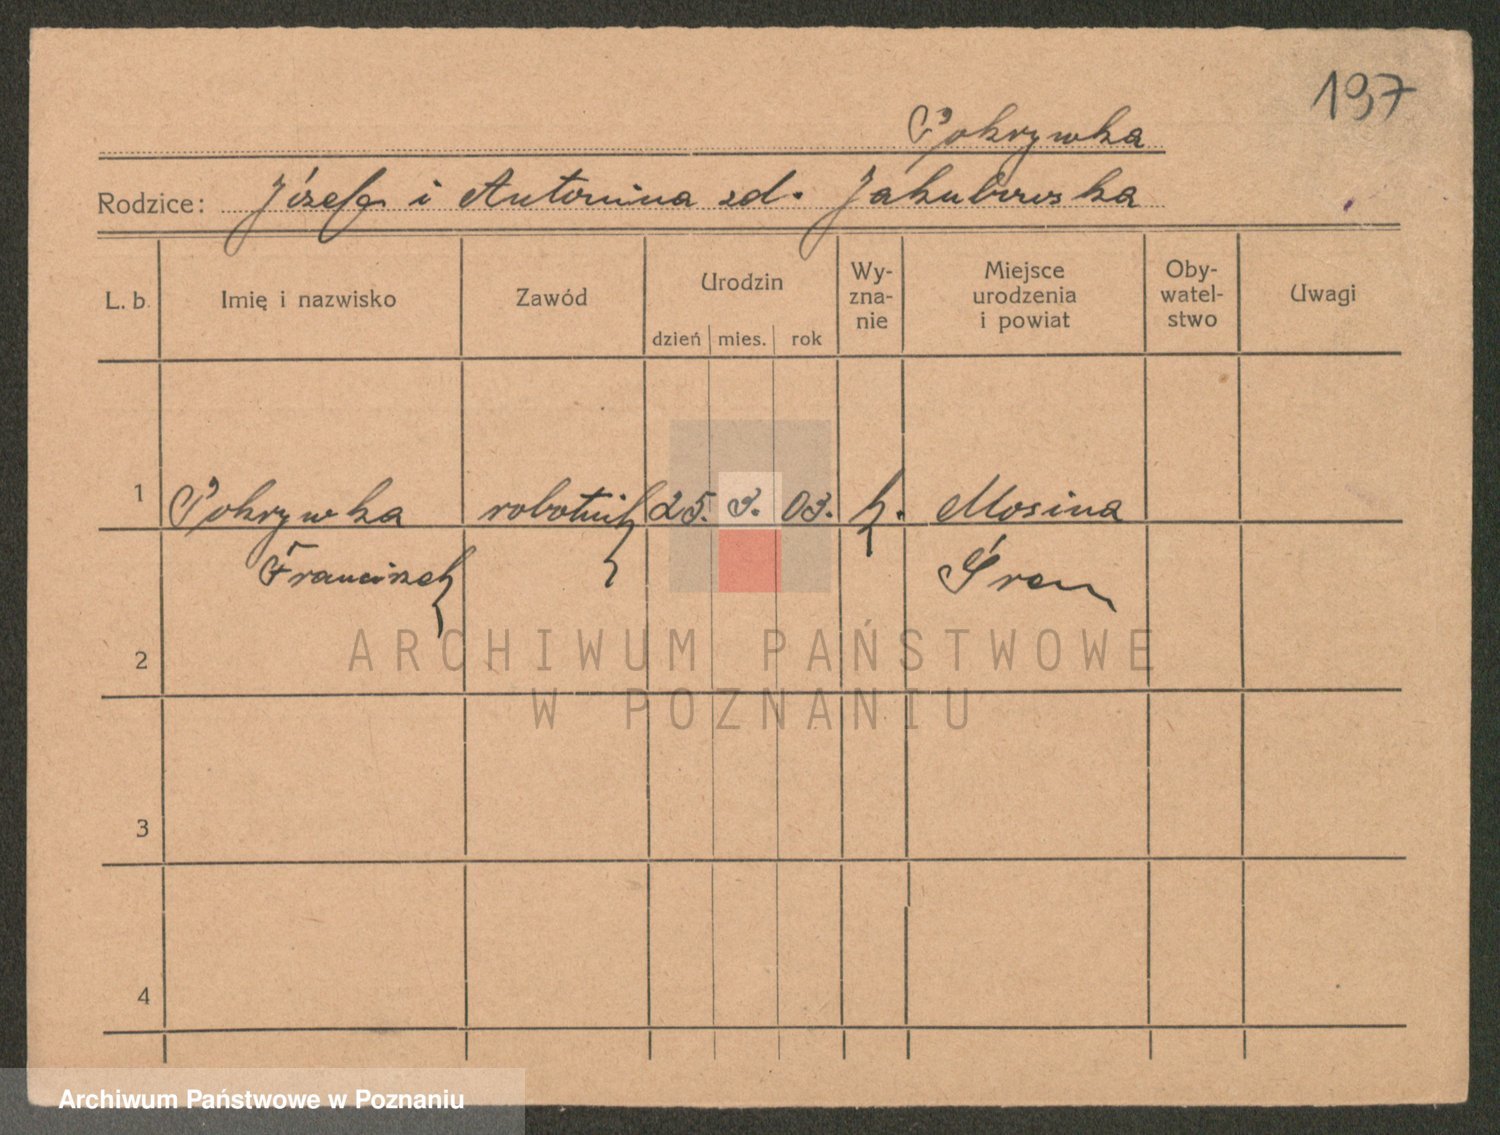 197
Pokrywka
Rodzice: Józef i Antonina zd. Jakubowska
L. b. Imię i nazwisko Zawód Urodzin dzień mies. rok Wy-zna-nie Miejsce urodzenia i powiat Oby-watel-stwo Uwagi
1 Pokrywka robotnik 25. 3. 03. k. Mosina
Franciszek Śrem
2
ARCHIWUM PAŃSTWOWE
W POZNANIU
3
4
Archiwum Państwowe w Poznaniu